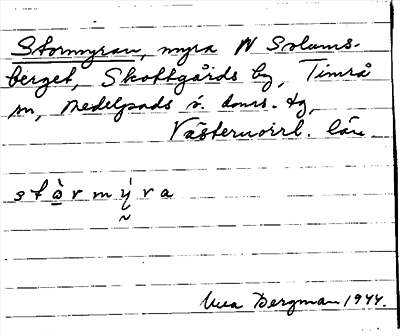 Stormyran, myra N Solums-
berget, Skottgårds by, Timrå
sn, Medelpads ö. doms. tg,
Västernorrl. län
stò̲rmý̰ra
Bergman 1944.